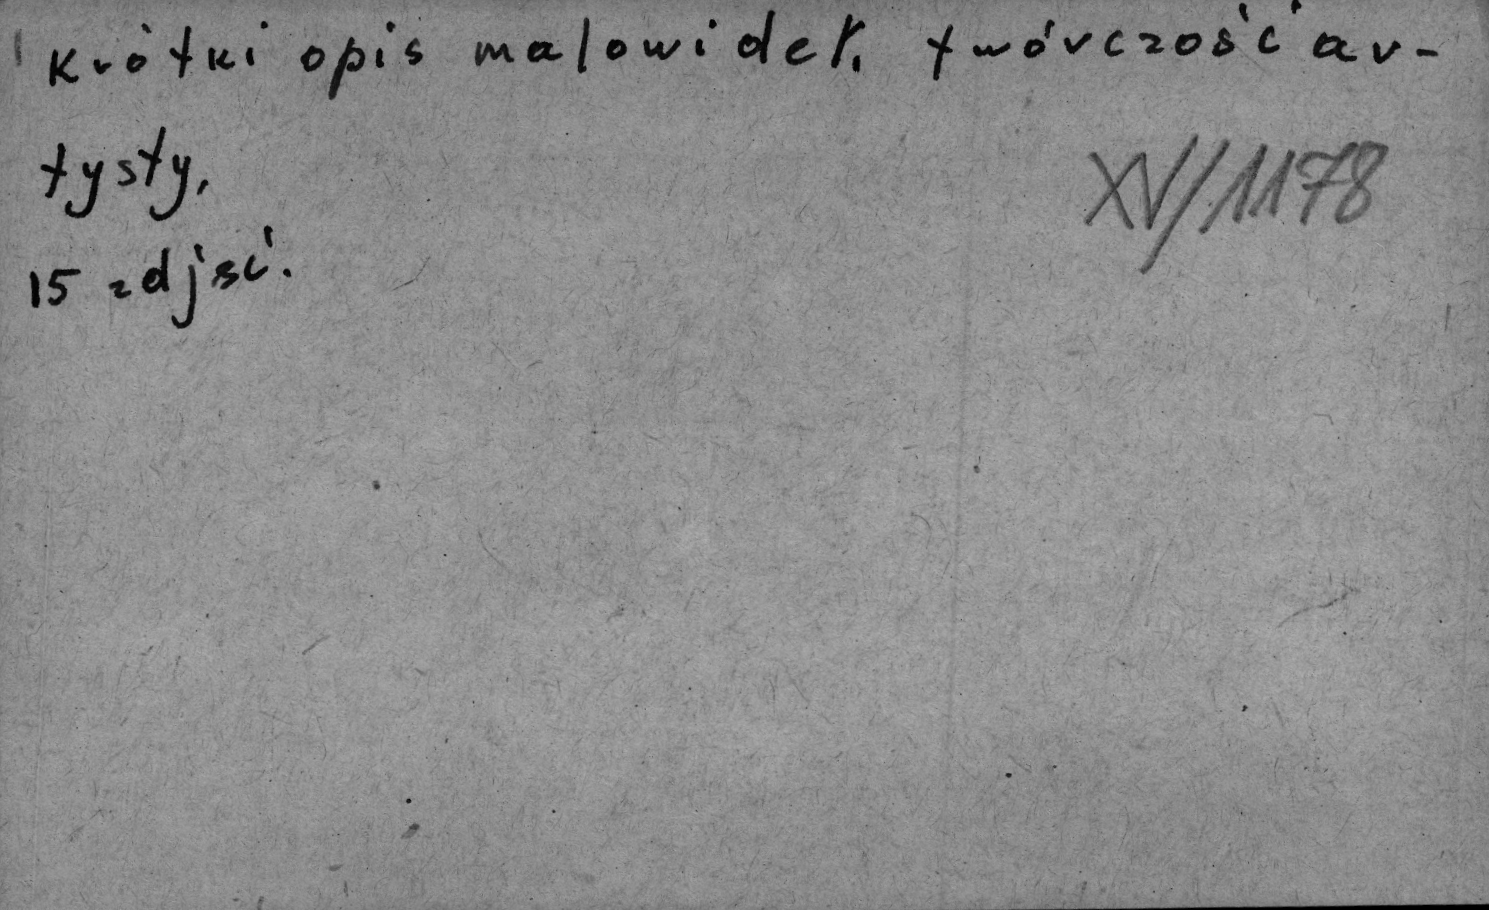 Krótki opis malowideł, twórczość ar-
tysty,
XV/1178
15 zdjęć.